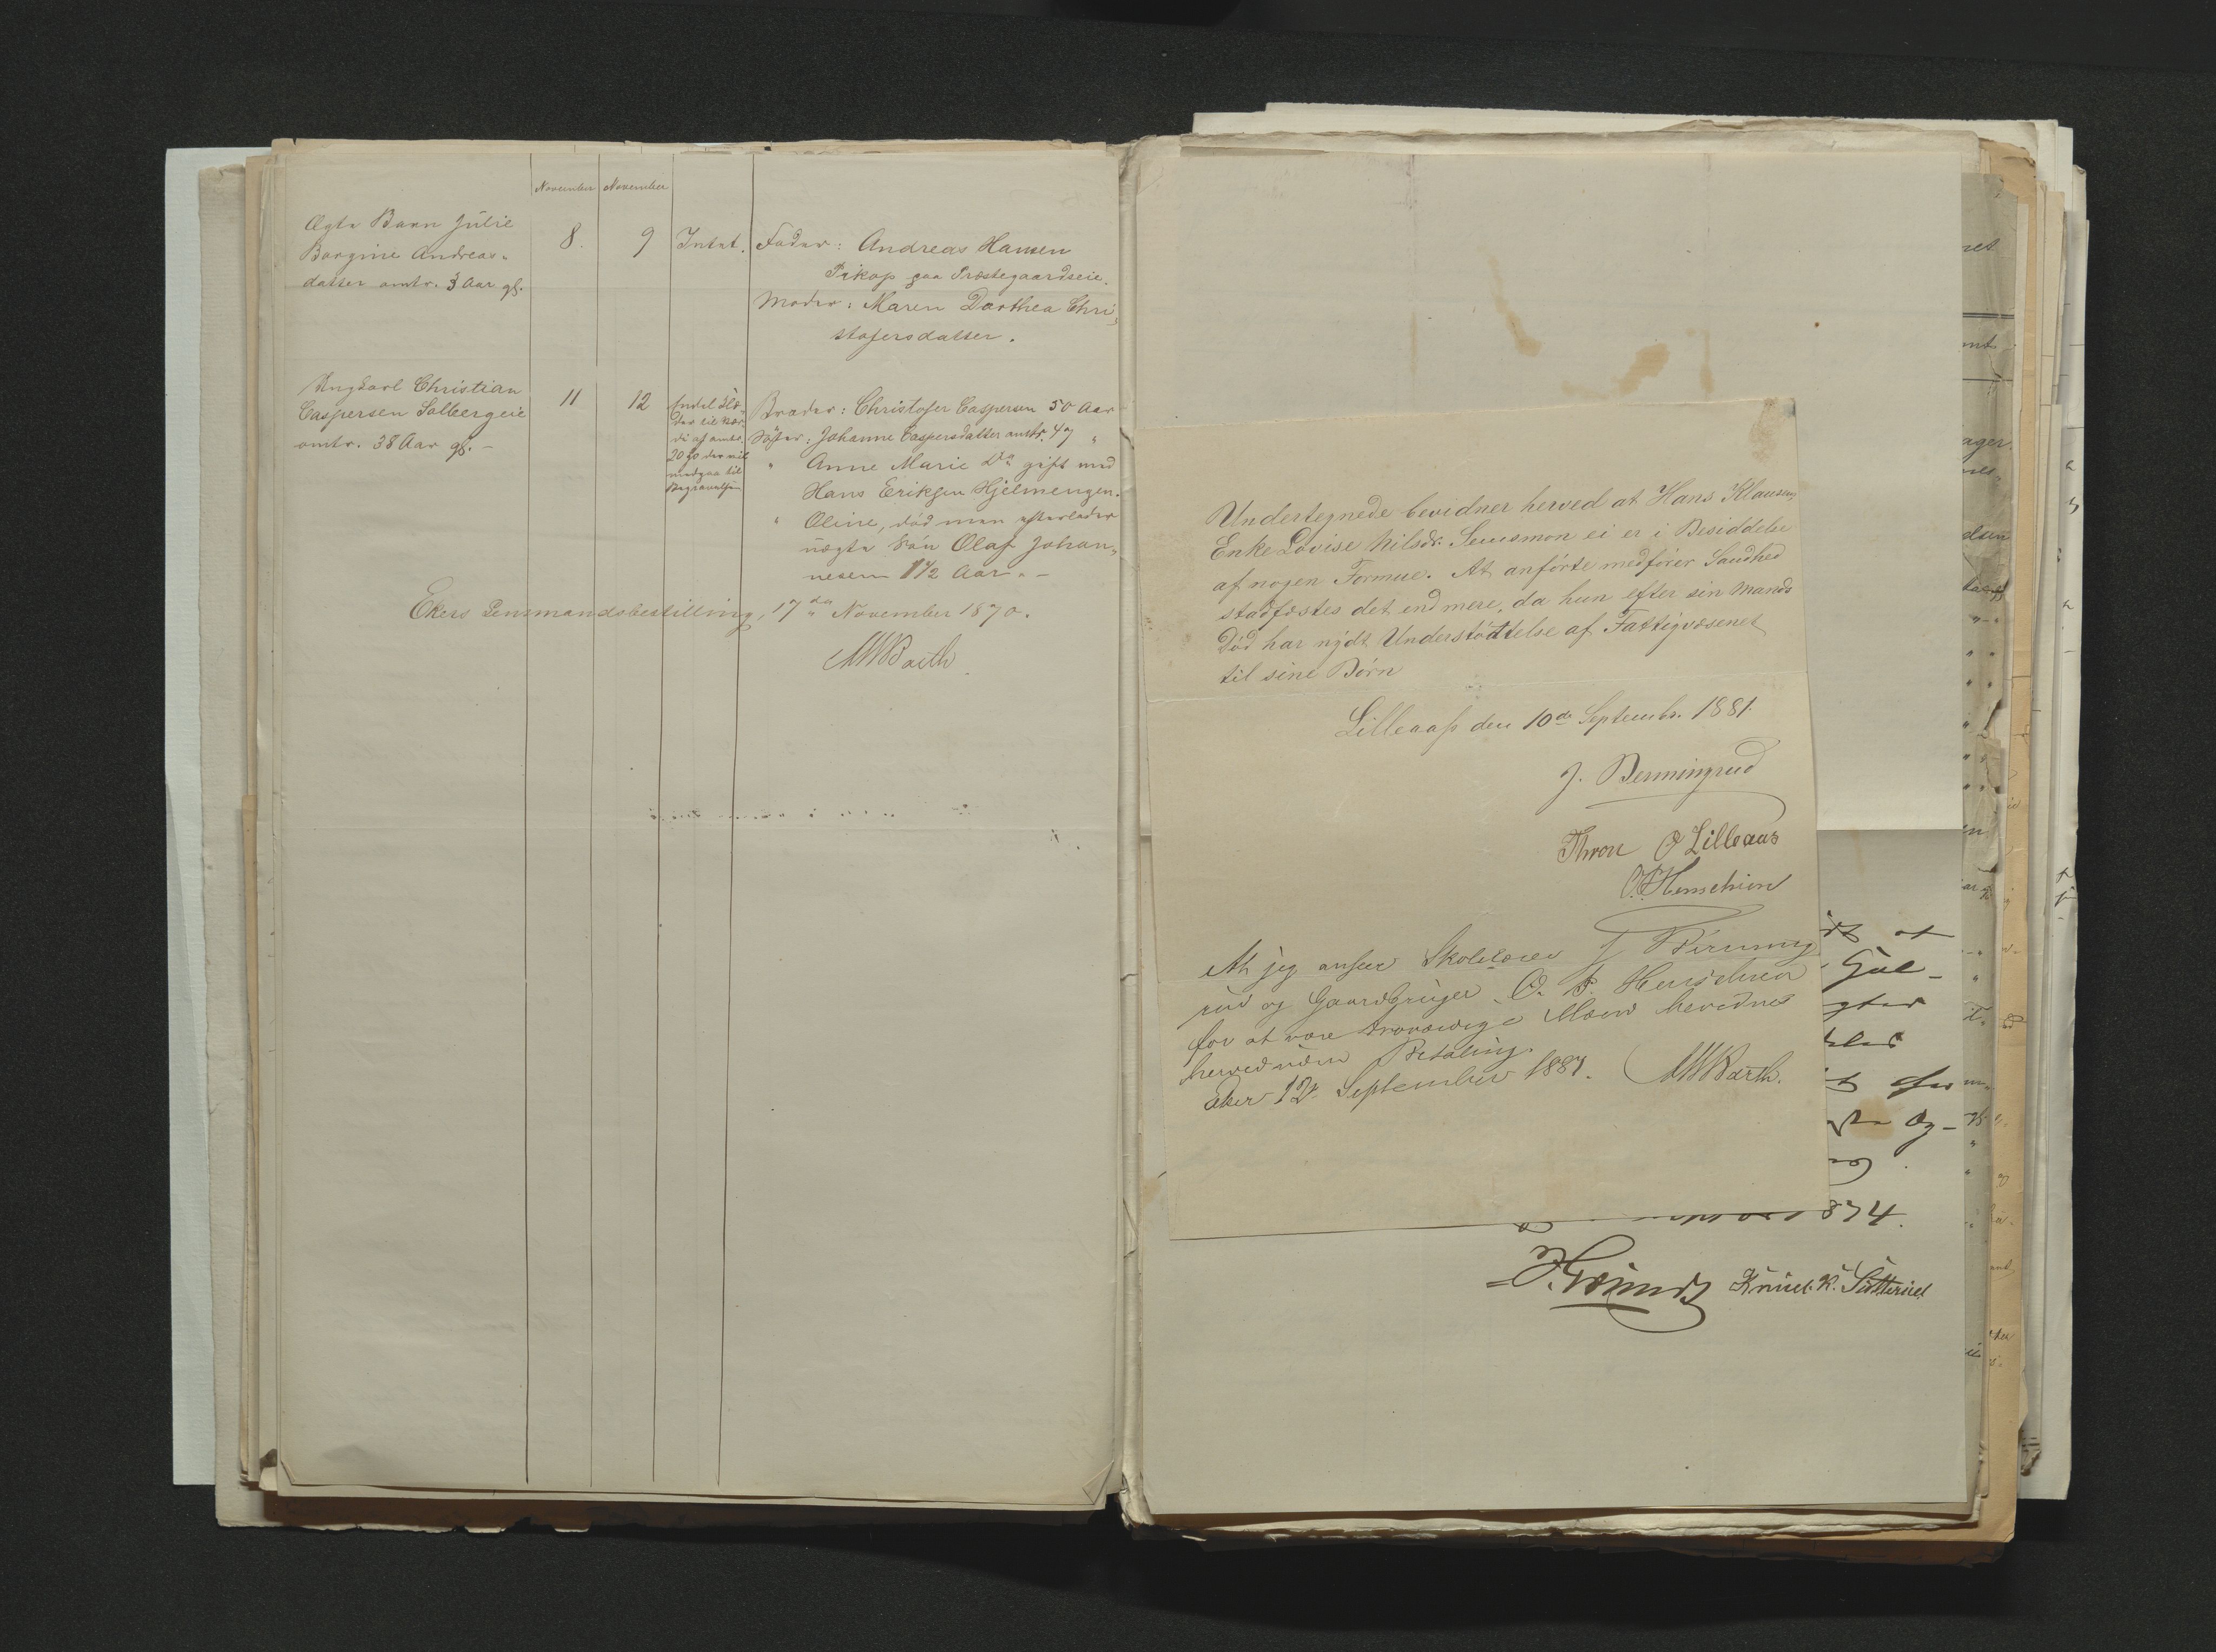 November November
Ægte Barn Julie
Borgine Andreas-
datter omtr. 3 Aar gl.
8. 9 Intet.
Fader: Andreas Hansen
Pikop paa Præstegaardseie.
Moder: Maren Dorthea Chri-
stofersdatter.
Ungkarl Christian
Caspersen Solbergeie
omtr. 38 Aar gl. -
11 12
Endel Klæ-
der til Vær-
di af omtr.
medgaa til
Begravelsen
Broder: Christofer Caspersen 50 Aar
Søster: Johanne Caspersdatter omtr. 47 "
" Anne Marie Do gift med
Hans Eriksen Hjelmengen.
" Oline, død men efterlader
uægte Søn Olaf Johan-
nesen 1 1/2 Aar. -
Ekers Lensmandsbestilling, 17de November 1870.
MWBarth
Undertegnede bevidner herved at Hans Klausens
Enke Lovise Nilsdr. Semsmon ei er i Besiddelse
af nogen Formue. At anførte medfører Sandhed
stadfæstes det end mere, da hun efter sin Mands
Død har nydt Understøttelse af Fattigvæsenet
til sine Børn
Lilleaas den 10de Septembr. 1881.
J. Bermingrud
Thron O Lilleaas
O. P. Henschien
At jeg anseer Skolelærer J Birming
rud og Gaardbruger O. P. Henschien
for at være troværdige Mænd bevidnes
herved uden Betaling.
Eker 12te September 1881. MWBarth.
dt at
Gul-
gter
Og-
1874.
Knud. K. Sütterud